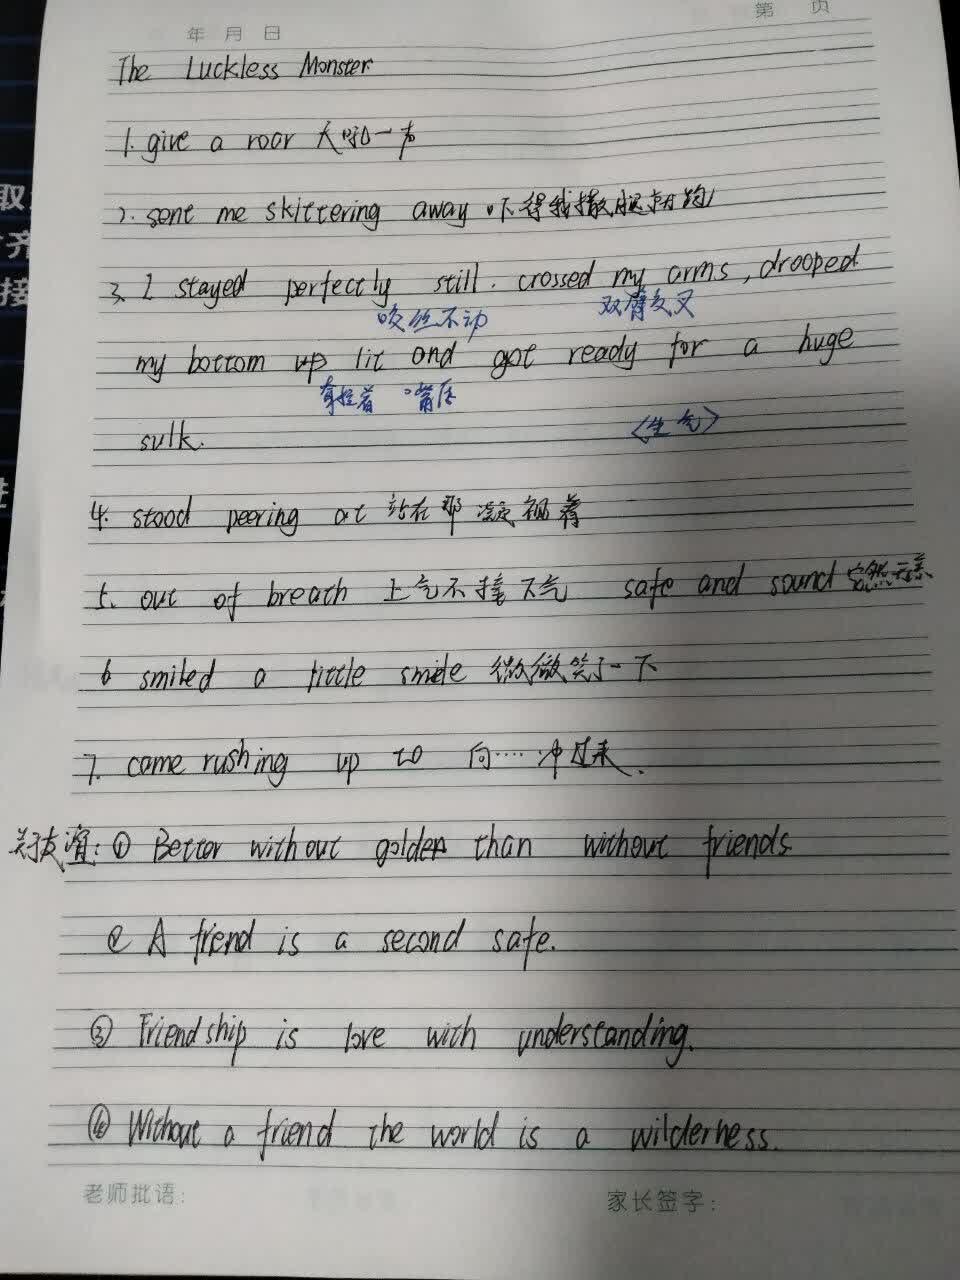 年 月 日
第 页
The Luckless Monster
1. give a roar 大吼一声
2. sent me skittering away 吓得我撒腿就跑
3. I stayed perfectly still. crossed my arms, drooped
纹丝不动 双臂交叉
my bottom up lit and got ready for a huge
着 嘴唇
sulk. (生气)
4. stood peering at 站在那凝视着
5. out of breath 上气不接下气 safe and sound 安然无恙
6 smiled a little smile 微微笑了一下
7. came rushing up to 向……冲过来.
关于友谊: ① Better without golden than without friends
② A friend is a second safe.
③ Friendship is love with understanding.
④ Without a friend the world is a wilderness.
老师批语: 家长签字:
取
齐
接